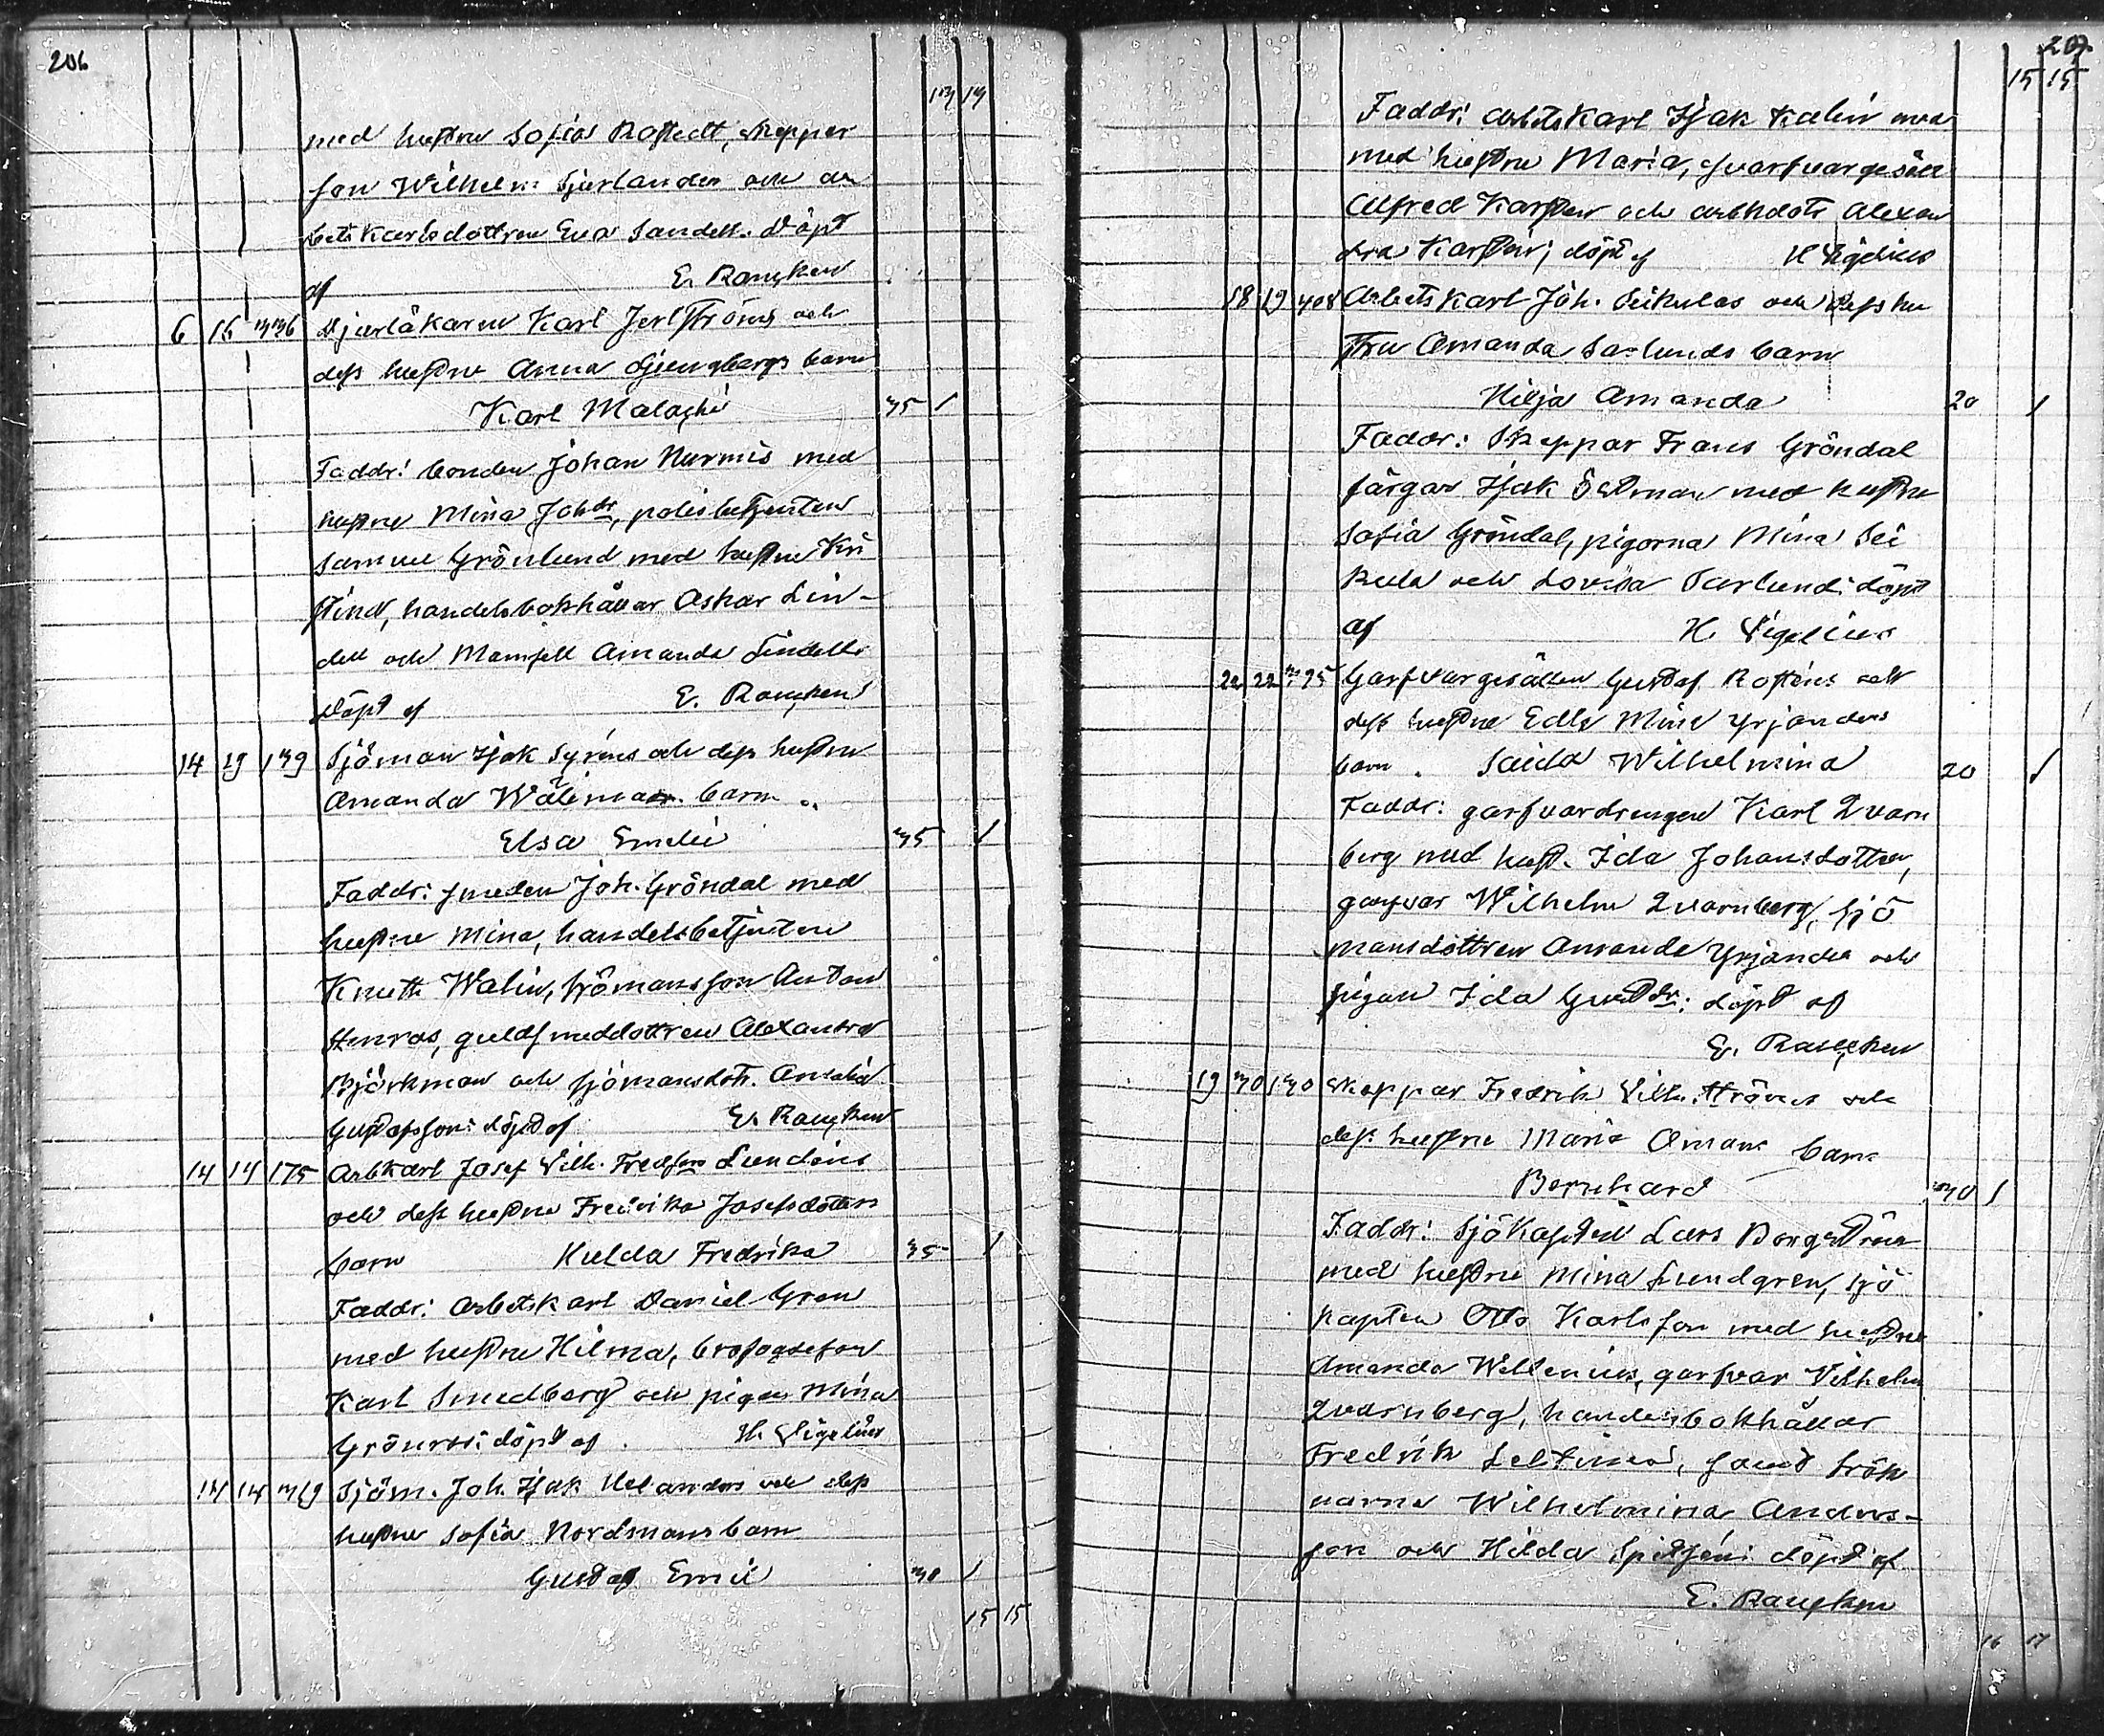 206
13 14
med hustru Sofia Rostedt, skeppar
son Wilhelm Sjerlander och ar
betskarlsdottren Eva Sandell. Döpt
af E. Rancken
6 15 336 Djurläkaren Karl Jerlströms och
dess hustru Anna Ljungbergs barn
Karl Malachi 35 1
Faddr: bonden Johan Nurmis med
hustru Mina Johdr, polisbetjenten
Samuel Grönlund med hustru Kri
stina, handelsbokhållar Oskar Lin-
dell och Mamsell Amanda Lindell:
döpt af E. Rancken
14 19 139 Sjöman Isak Syréns och dess hustru
Amanda Wälimaa barn
Elsa Emilie 35 1
Faddr: smeden Joh. Gröndal med
hustru Mina, handelsbetjenten
Knuth Walin, sjömansson Anton
Henras, guldsmeddottren Alexandra
Björkman och sjömansdotr. Amalia
Gustafsson: döpt af E. Rancken
14 14 175 Arbkarl Josef Vilh. Fredsson Lundéns
och dess hustru Fredrika Josefsdotters
barn Hulda Fredrika 35 1
Faddr: Arbetskarl Daniel Gren
med hustru Hilma, brofogdeson
Karl Smedberg och pigan Mina
Grönros: döpt af H. Vigelius
14 14 319 Sjöm. Joh. Isak Helanders och dess
hustru Sofia Nordmans barn
Gustaf Emil 30 1
15 15
207
15 15
Faddr: arbetskarl Isak Kalin med
med hustru Maria, garfvargesäll
Alfred Karsten och arbkdotr Alexan
dra Karsten; döpt af H Vigelius
18 19 408 Arbetskarl Joh. Seikulas och dess hu
stru Amanda Saxlunds barn
Hilja Amanda 20 1
Faddr: Skeppar Frans Gröndal
färgar Isak Östman med hustru
Sofia Gröndal, pigorna Mina Sei
kula och Lovisa Sarlund: döpt
af H. Vigelius
22 22 395 Garfvargesällen Gustaf Rosténs och
dess hustru Edla Mina Yrjanders
barn Saida Wilhelmina 20 1
Faddr: garfvardrengen Karl Qvarn
berg med hust. Ida Johansdotter,
garfvar Wilhelm Qvarnberg, sjö
mansdottren Amanda Yrjander och
pigan Ida Gustdr: döpt af
E. Rancken
19 30 130 Skeppar Fredrik Vilh. ströms och
dess hustru Maria Amans barn
Bernhard 30 1
Faddr: Sjökapten Lars Borgström
med hustru Mina Lundgren, sjö
kapten Otto Karlsson med hustru
Amanda Wellenius, garfvar Vilhelm
Qvarnberg, handelsbokhållar
Fredrik Seltin, samt frök
narna Wilhelmina Anders-
son och Hilda döpt af
E. Rancken
16 17